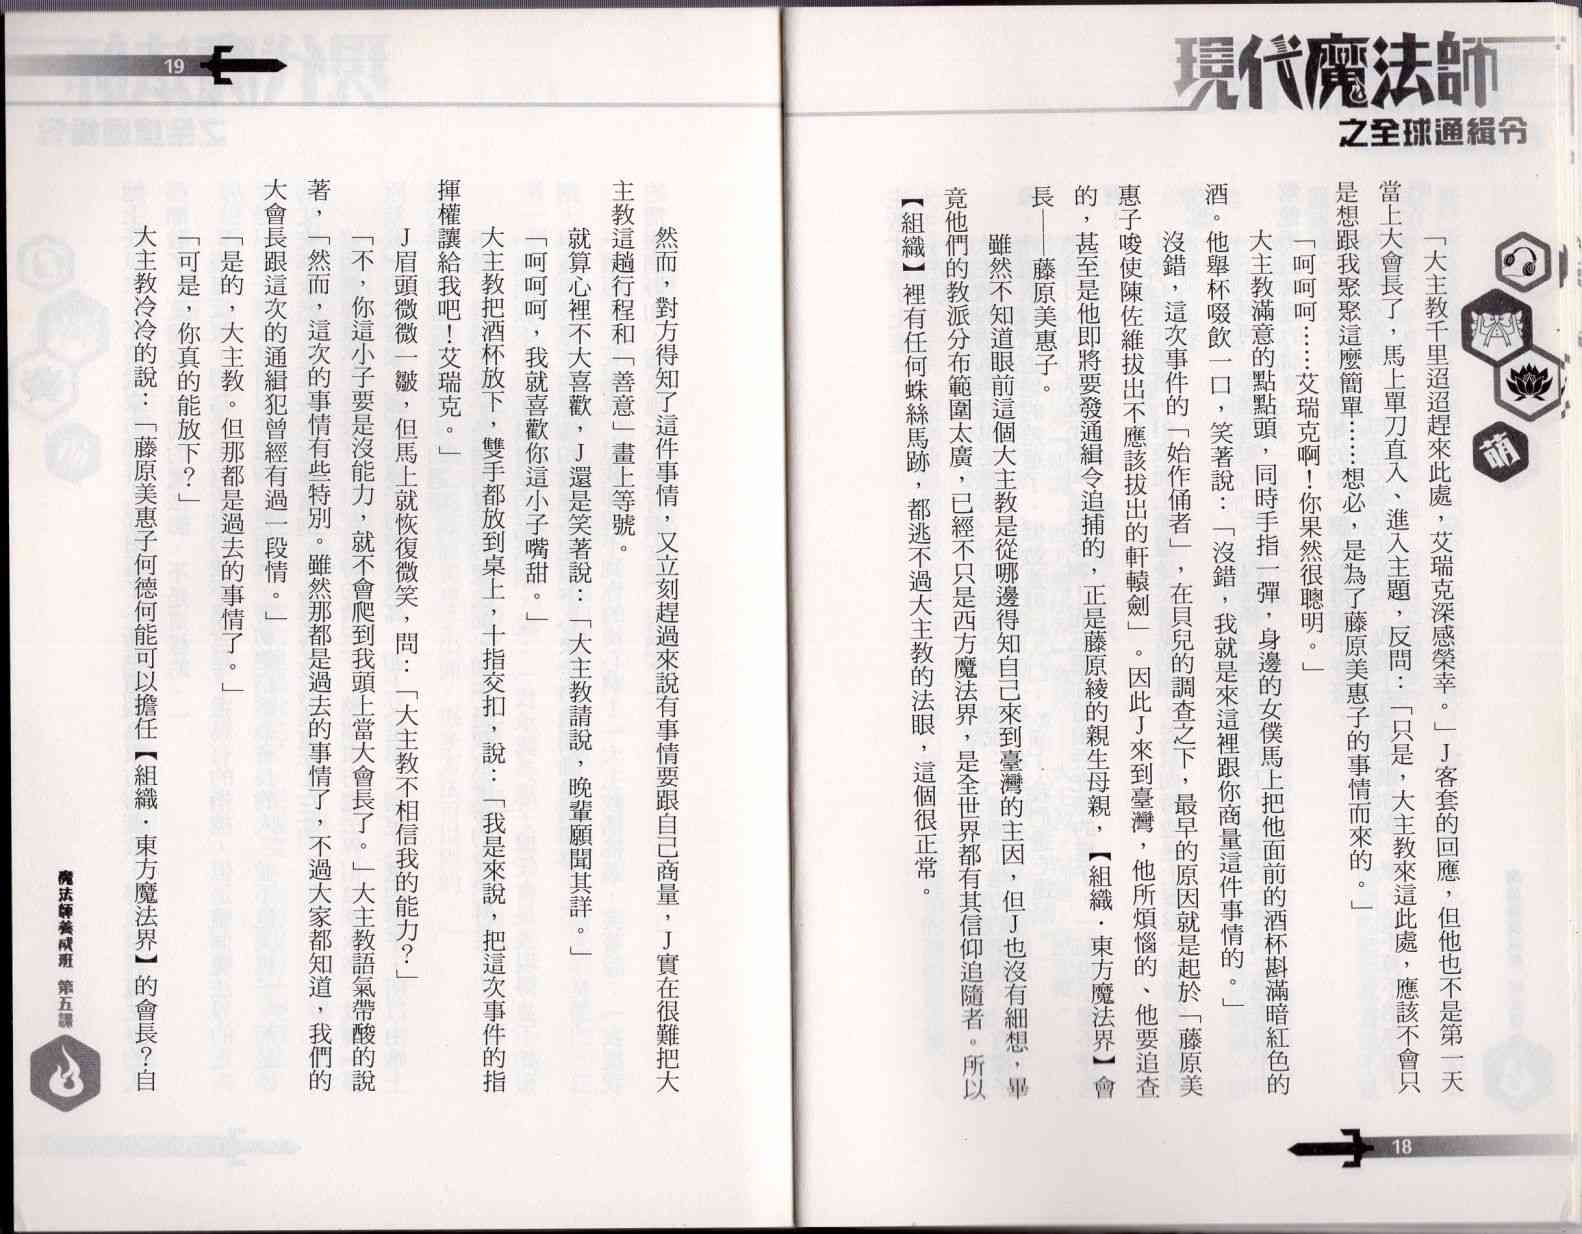 現代魔法師
之全球通緝令
萌
「大主教千里迢迢趕來此處，艾瑞克深感榮幸。」J客套的回應，但他也不是第一天
當上大會長了，馬上單刀直入、進入主題，反問：「只是，大主教來這此處，應該不會只
是想跟我聚聚這麼簡單……想必，是為了藤原美惠子的事情而來的。」
「呵呵呵……艾瑞克啊！你果然很聰明。」
大主教滿意的點點頭，同時手指一彈，身邊的女僕馬上把他面前的酒杯斟滿暗紅色的
酒。他舉杯啜飲一口，笑著說：「沒錯，我就是來這裡跟你商量這件事情的。」
沒錯，這次事件的「始作俑者」，在貝兒的調查之下，最早的原因就是起於「藤原美
惠子唆使陳佐維拔出不應該拔出的軒轅劍」。因此J來到臺灣，他所煩惱的、他要追查
的，甚至是他即將要發通緝令追捕的，正是藤原綾的親生母親，【組織．東方魔法界】會
長——藤原美惠子。
雖然不知道眼前這個大主教是從哪邊得知自己來到臺灣的主因，但J也沒有細想，畢
竟他們的教派分布範圍太廣，已經不只是西方魔法界，是全世界都有其信仰追隨者。所以
【組織】裡有任何蛛絲馬跡，都逃不過大主教的法眼，這個很正常。
18
19
然而，對方得知了這件事情，又立刻趕過來說有事情要跟自己商量，J實在很難把大
主教這趟行程和「善意」畫上等號。
就算心裡不大喜歡，J還是笑著說：「大主教請說，晚輩願聞其詳。」
「呵呵呵，我就喜歡你這小子嘴甜。」
大主教把酒杯放下，雙手都放到桌上，十指交扣，說：「我是來說，把這次事件的指
揮權讓給我吧！艾瑞克。」
J眉頭微微一皺，但馬上就恢復微笑，問：「大主教不相信我的能力？」
「不，你這小子要是沒能力，就不會爬到我頭上當大會長了。」大主教語氣帶酸的說
著，「然而，這次的事情有些特別。雖然那都是過去的事情了，不過大家都知道，我們的
大會長跟這次的通緝犯曾經有過一段情。」
「是的，大主教。但那都是過去的事情了。」
「可是，你真的能放下？」
大主教冷冷的說：「藤原美惠子何德何能可以擔任【組織．東方魔法界】的會長？自
魔法師養成班 第五課